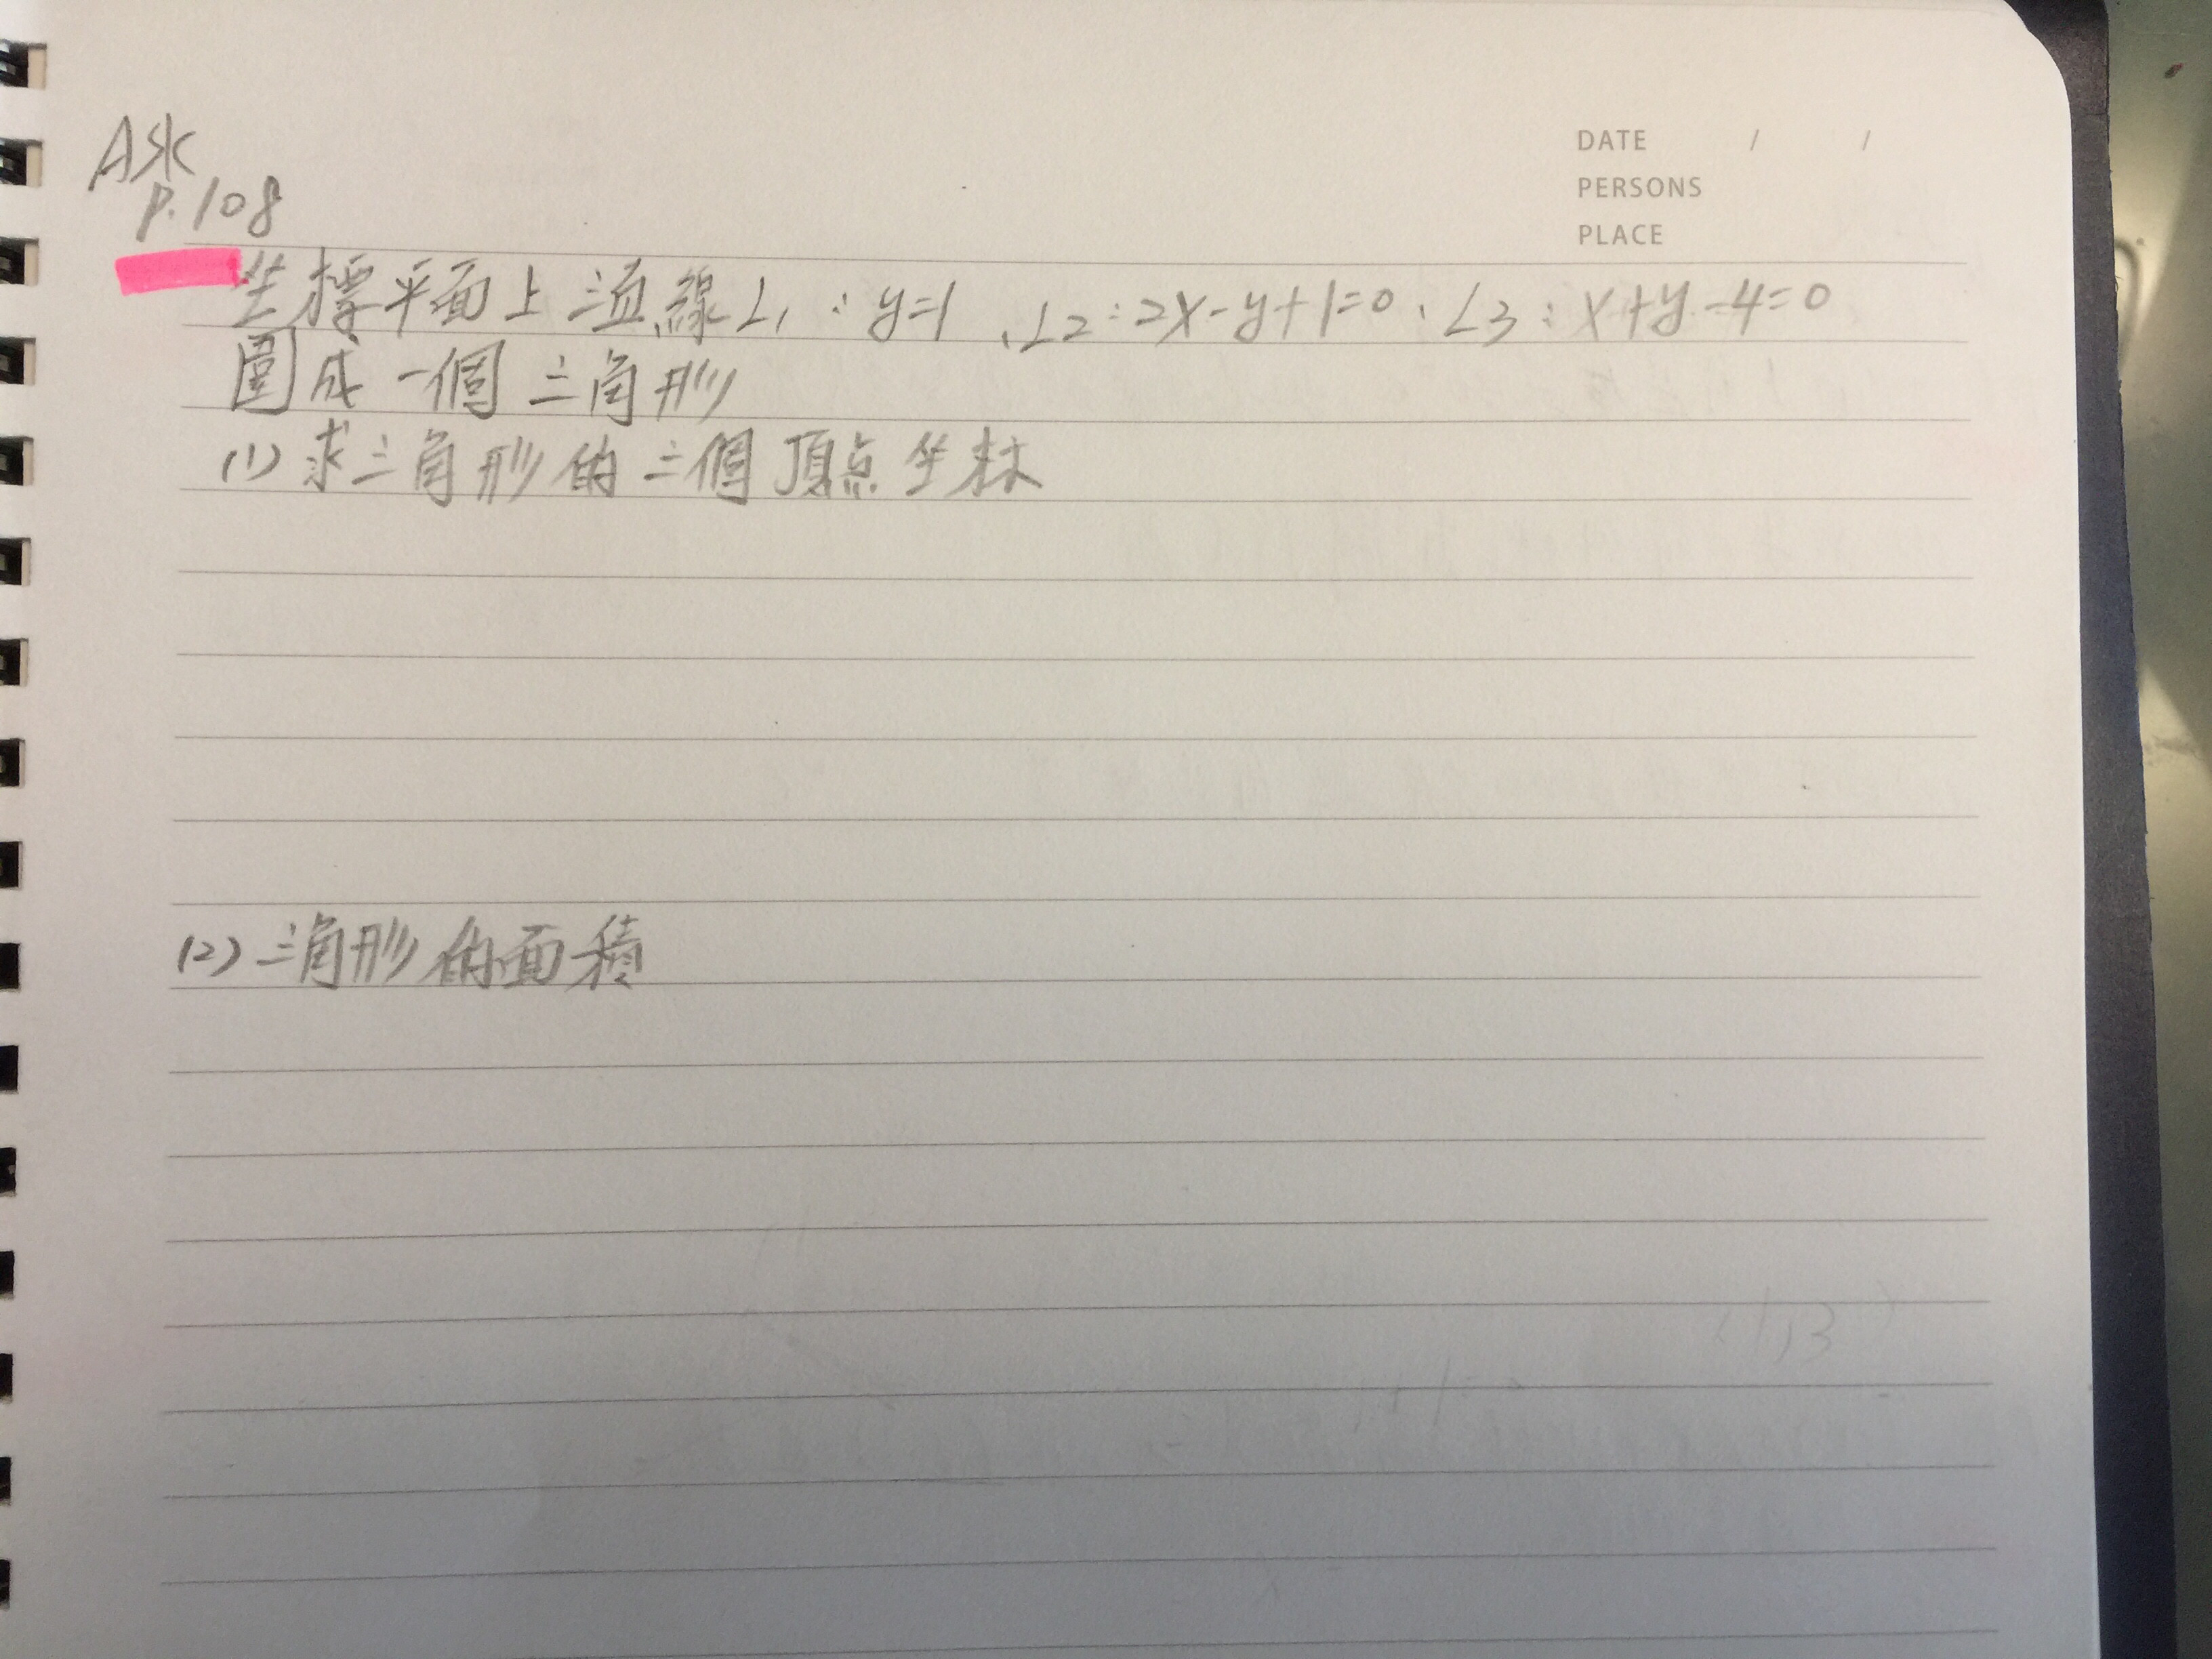 Ask
P.108
DATE / /
PERSONS
PLACE
坐標平面上三直線L1:y=1、L2:2x-y+1=0、L3:x+y-4=0
圍成一個三角形
(1)求三角形的三個頂点坐标
(2)三角形的面積